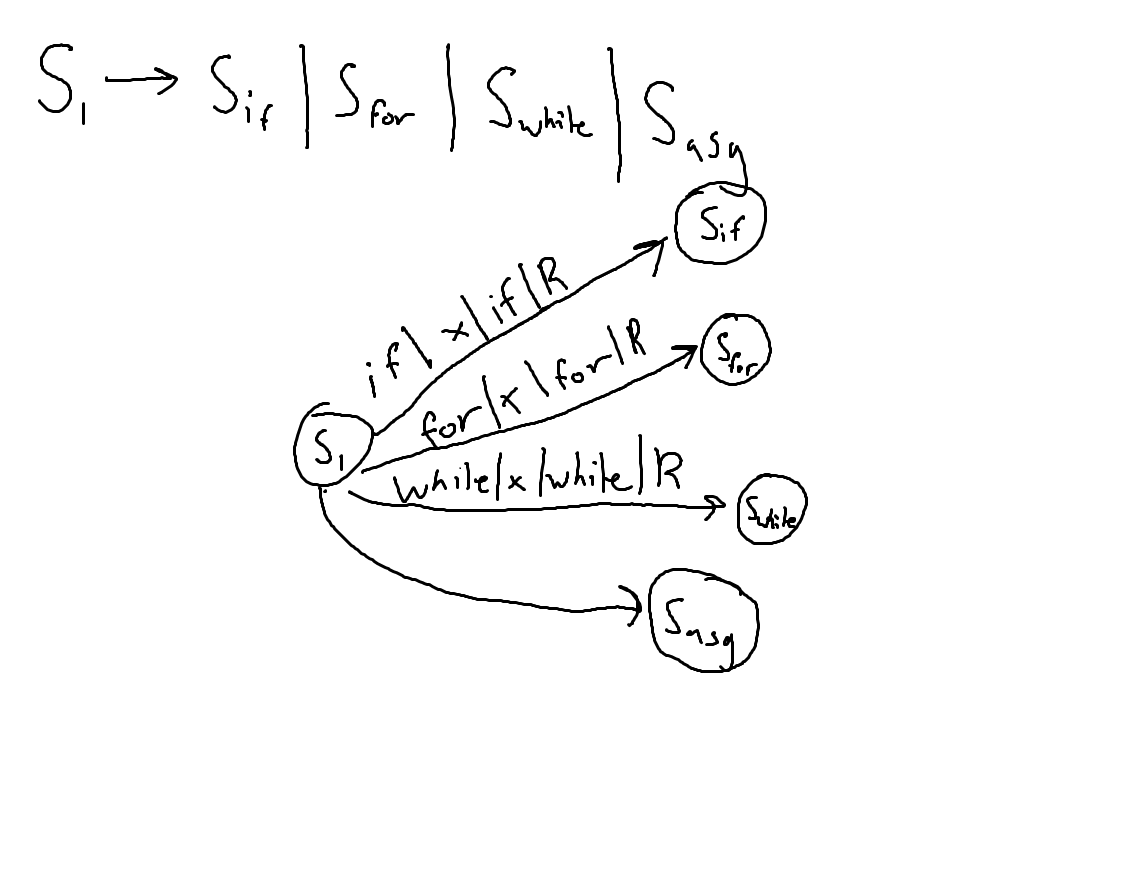 S₁ → S_if | S_for | S_while | S_asg
S_if
if | x | if | R
S_for
for | x | for | R
S₁
while | x | while | R
S_while
S_asg